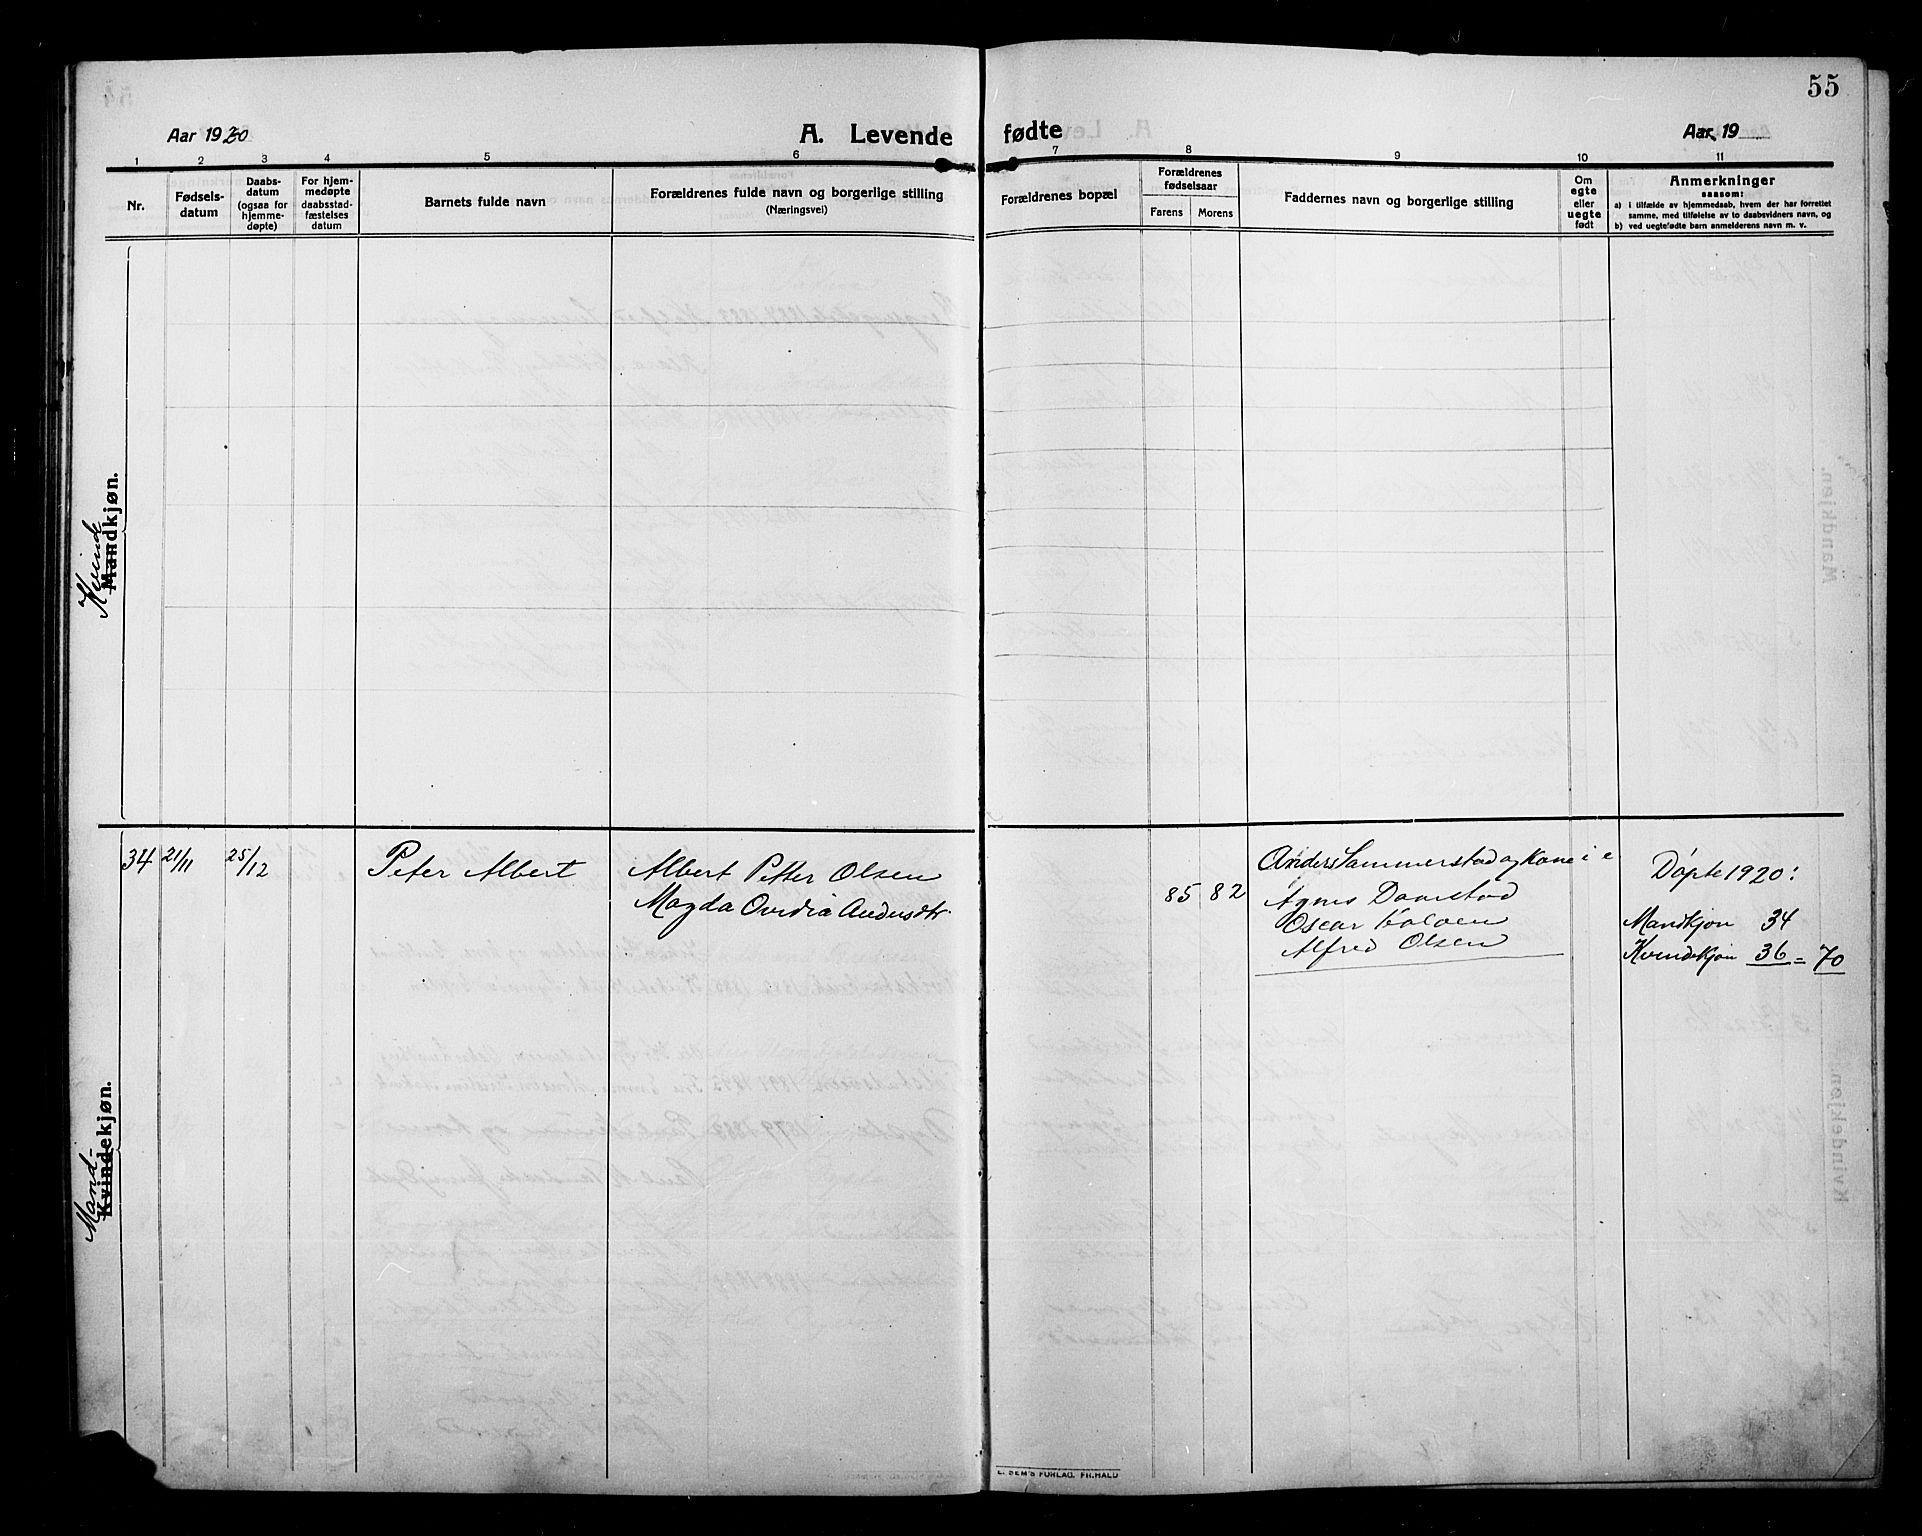 55
Aar 1920
A. Levende fødte
Aar 19
1 2 3 4 5 6 7 8 9 10 11
Nr.
Fødsels-
datum
Daabs-
datum
(ogsaa for
hjemme-
døpte)
For hjem-
medøpte
daabsstad-
fæstelses
datum
Barnets fulde navn
Forældrenes fulde navn og borgerlige stilling
(Næringsvei)
Forældrenes bopæl
Forældrenes
fødselsaar
Farens Morens
Faddernes navn og borgerlige stilling
Om
egte
eller
uegte
født
Anmerkninger
saasom:
a) i tilfælde av hjemmedaab, hvem der har forrettet
samme, med tilføielse av to daabsvidners navn, og
b) ved uegtefødte barn anmelderens navn m. v.
Kvinde
Mandkjøn.
34 21/11 25/12 Peter Albert
Albert Petter Olsen
Magda Ovidia Andersdtr.
85 82
Anders Sammerstad og Kone i e
Agnes Daarstad
Oscar
Alfred Olsen
Døpte 1920:
Mandkjøn 34
Kvindekjøn 36 = 70
Mand-
Kvindekjøn.
E. SEM'S FORLAG, FR.HALD